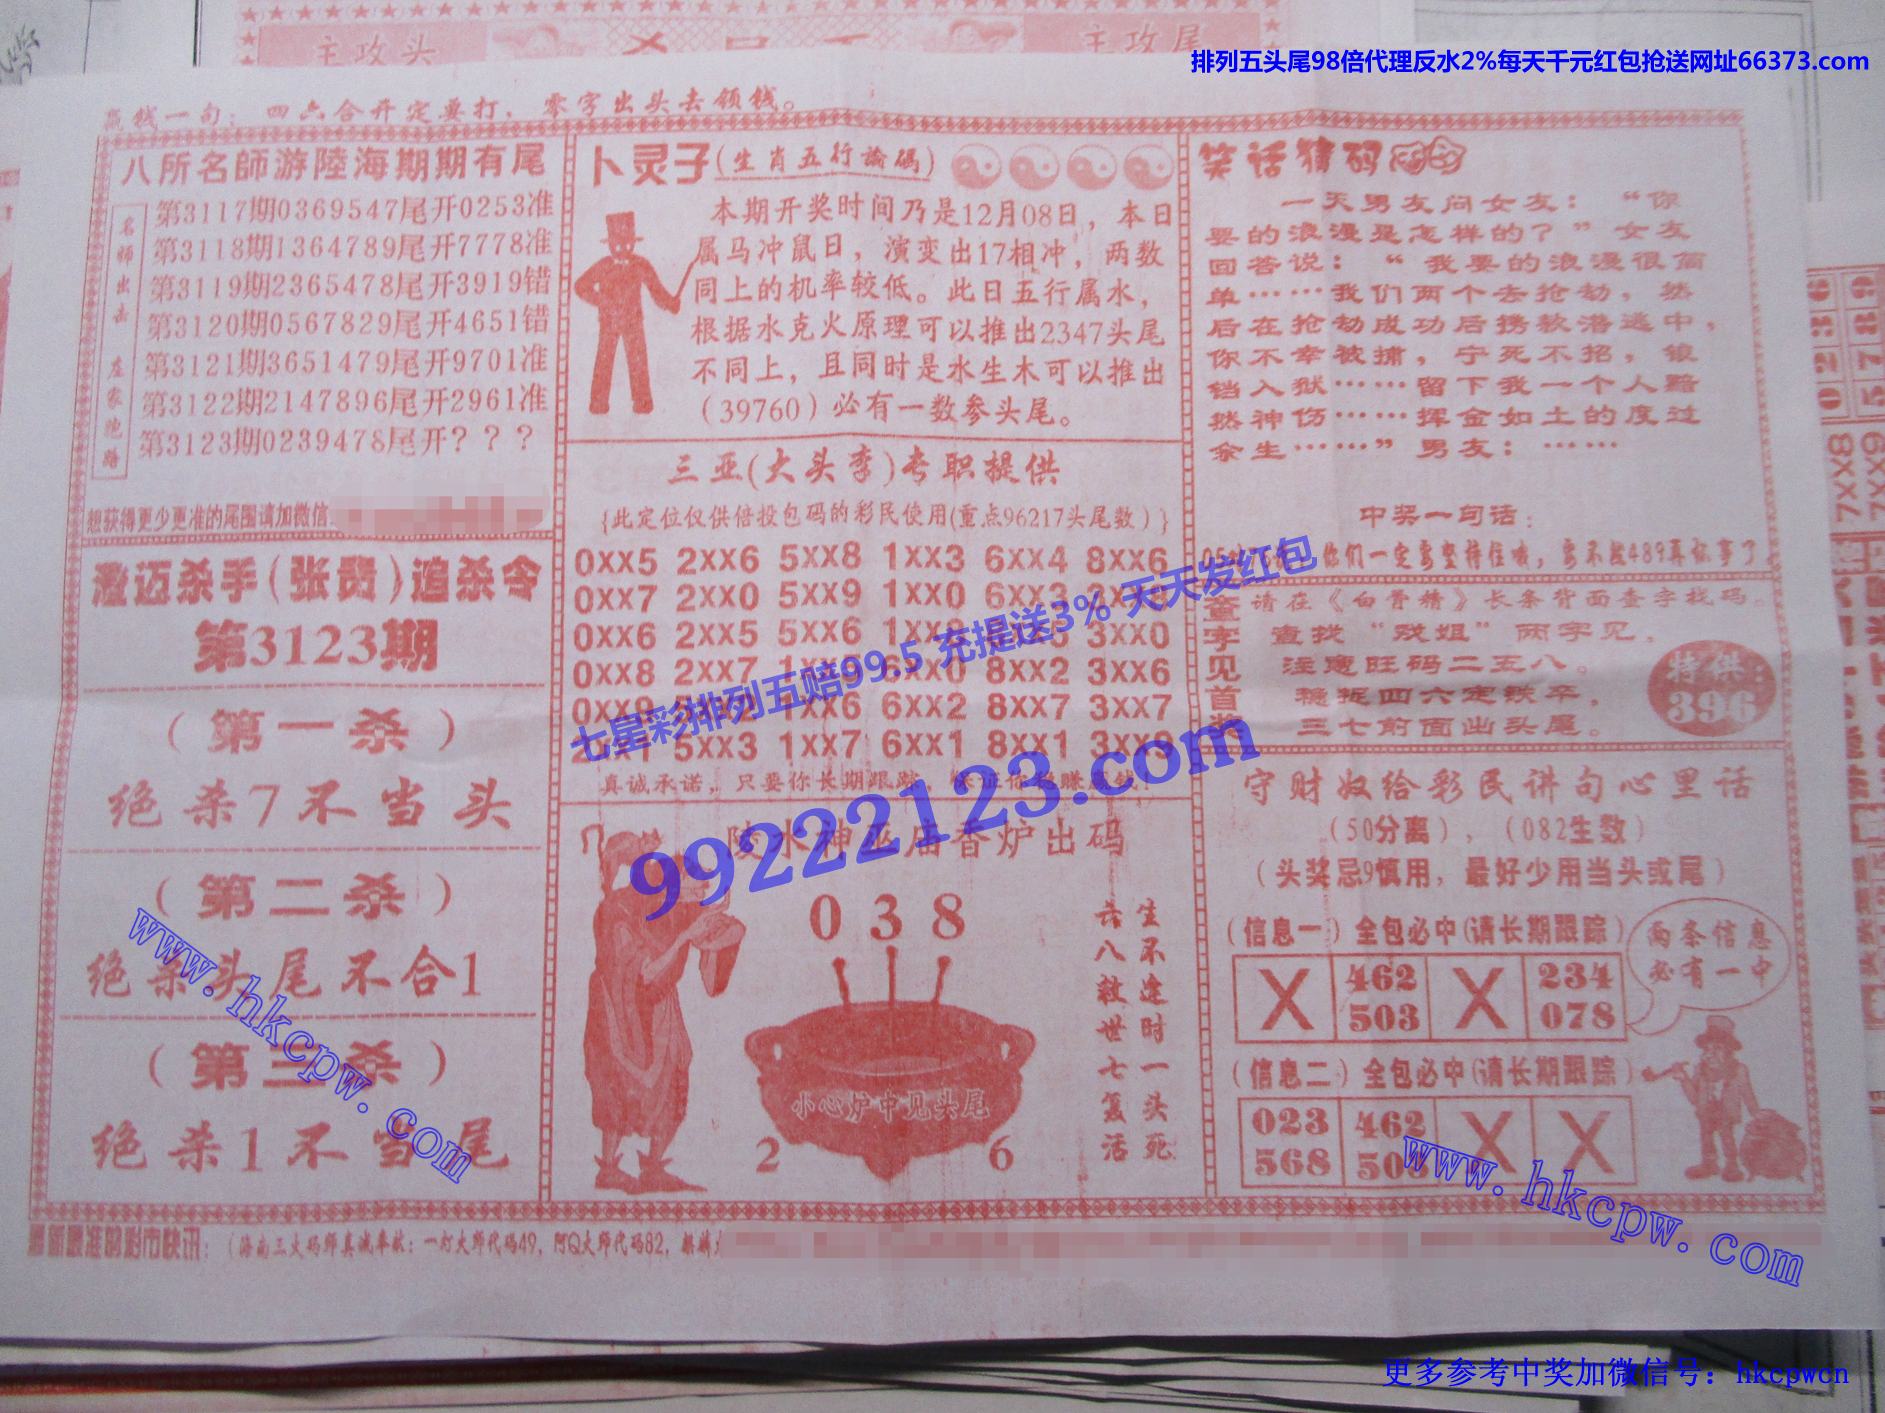 主攻头
主攻尾
排列五头尾98倍代理反水2%每天千元红包抢送网址66373.com
赢钱一句：四六合开定要打，零字出头去领钱。
八所名師游陸海期期有尾
名师出击 庄家跑路
第3117期0369547尾开0253准
第3118期1364789尾开7778准
第3119期2365478尾开3919错
第3120期0567829尾开4651错
第3121期3651479尾开9701准
第3122期2147896尾开2961准
第3123期0239478尾开？？？
想获得更少更准的尾围请加微信
澄迈杀手(张贵)追杀令
第3123期
（第一杀）
绝杀7不当头
（第二杀）
绝杀头尾不合1
（第三杀）
绝杀1不当尾
卜灵子(生肖五行論碼)
本期开奖时间乃是12月08日，本日
属马冲鼠日，演变出17相冲，两数
同上的机率较低。此日五行属水，
根据水克火原理可以推出2347头尾
不同上，且同时是水生木可以推出
（39760）必有一数参头尾。
三亚(大头李)专职提供
{此定位仅供倍投包码的彩民使用(重点96217头尾数)}
0XX5 2XX6 5XX8 1XX3 6XX4 8XX6
0XX7 2XX0 5XX9 1XX0 6XX3
0XX6 2XX5 5XX6 3XX0
0XX8 2XX7 8XX2 3XX6
1XX6 6XX2 8XX7 3XX7
5XX3 1XX7 6XX1 8XX1
真诚承诺，只要你长期跟踪，保证你稳赚赢钱！
陵水神巫庙香炉出码
038
生不逢时一头死
六八救世七复活
小心炉中见头尾
2 6
笑话猜码
一天男友问女友：“你
要的浪漫是怎样的？”女友
回答说：“我要的浪漫很简
单……我们两个去抢劫，然
后在抢劫成功后携款潜逃中，
你不幸被捕，宁死不招，锒
铛入狱……留下我一个人黯
然神伤……挥金如土的度过
余生……”男友：……
中奖一句话：
你们一定要坚持住哦，要不然489再你事了
查字见首奖
请在《白骨精》长条背面查字找码。
查找“戏姐”两字见，
注意旺码二五八。
稳捉四六定铁卒，
三七前面出头尾。
特供：
396
守财奴给彩民讲句心里话
（50分离），（082生数）
（头奖忌9慎用，最好少用当头或尾）
（信息一）全包必中(请长期跟踪)
X 462 X 234
503 078
两条信息
必有一中
（信息二）全包必中(请长期跟踪)
023 462 X X
568
最新最准的彩市快讯：（海南三大码师真诚奉献：一灯大师代码49，阿Q大师代码82，
七星彩排列五赔99.5 充提送3% 天天发红包
99222123.com
www.hkcpw.com
www.hkcpw.com
更多参考中奖加微信号：hkcpwcn